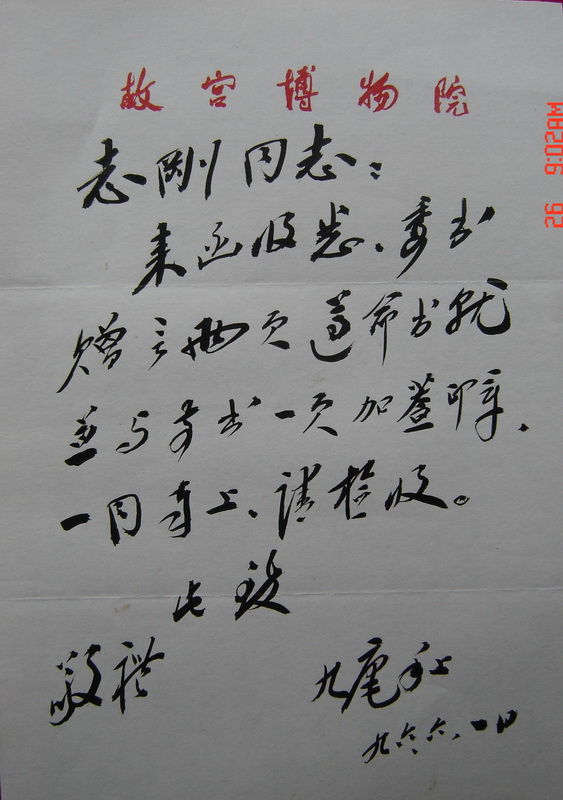 故宫博物院
志刚同志：
来函收悉、委书
赠言两页遵命书就
并与前书一页加盖印章.
一同寄上、请检收。
此致
敬礼
九庵手上
九六、六、一日